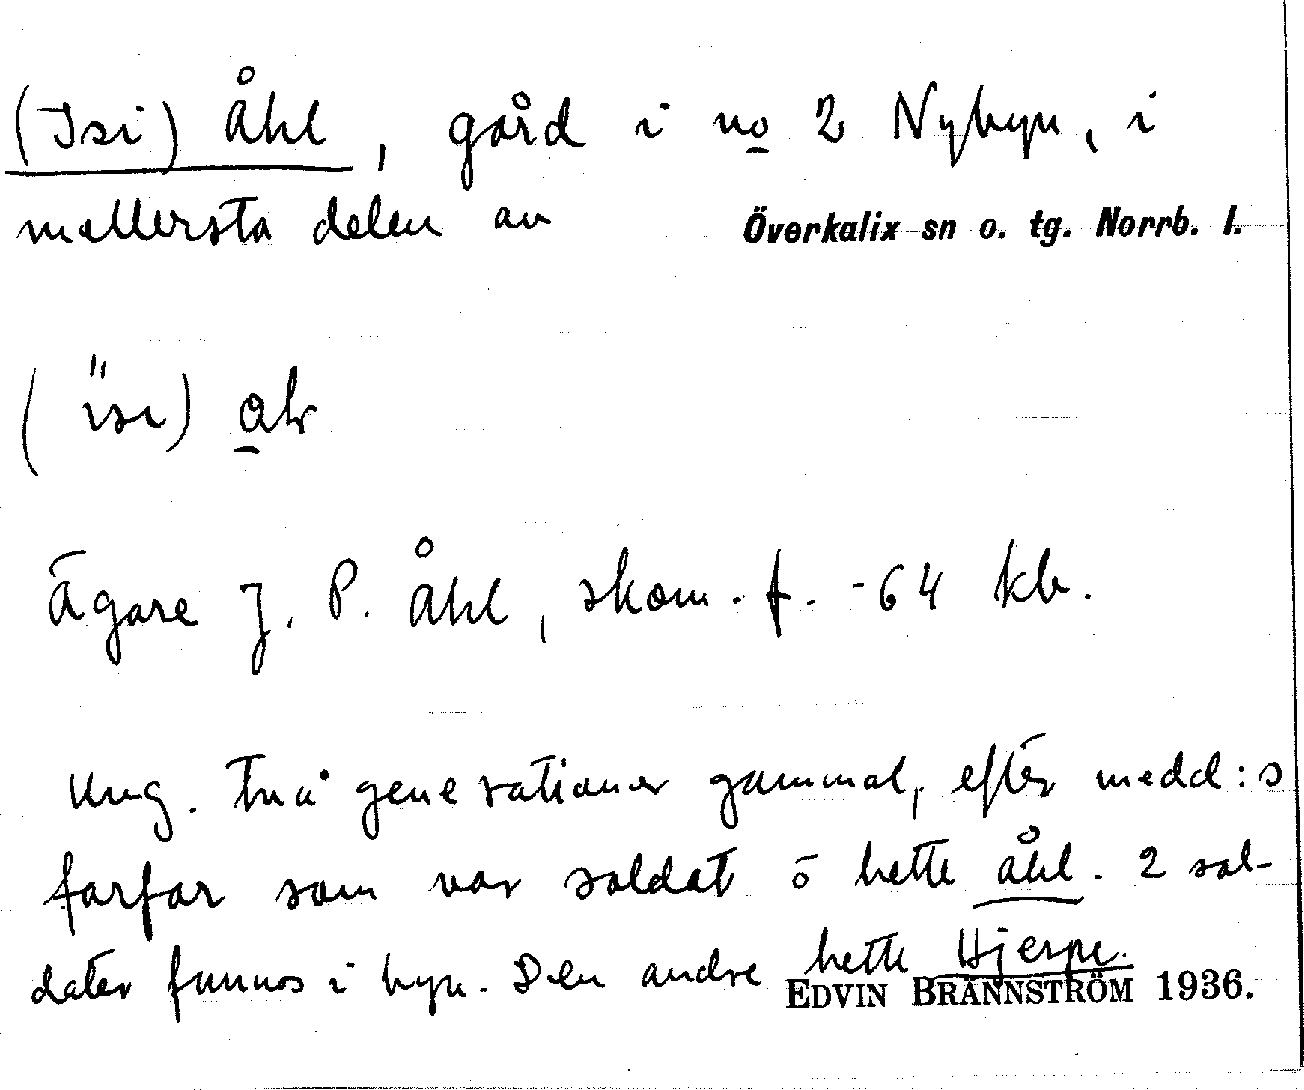 (Isi) Åhl, gård i no 2 Nybyn, i
mellersta delen av Överkalix sn o. tg. Norrb. l.
Ägare J. P. Åhl, skom. f. -64 kb.
Ung. två generationer gammal, efter medd:s
farfar som var soldat o hette Åhl. 2 sol-
dater funnos i byn. Den andre hette Hjerpe.
EDVIN BRÄNNSTRÖM 1936.